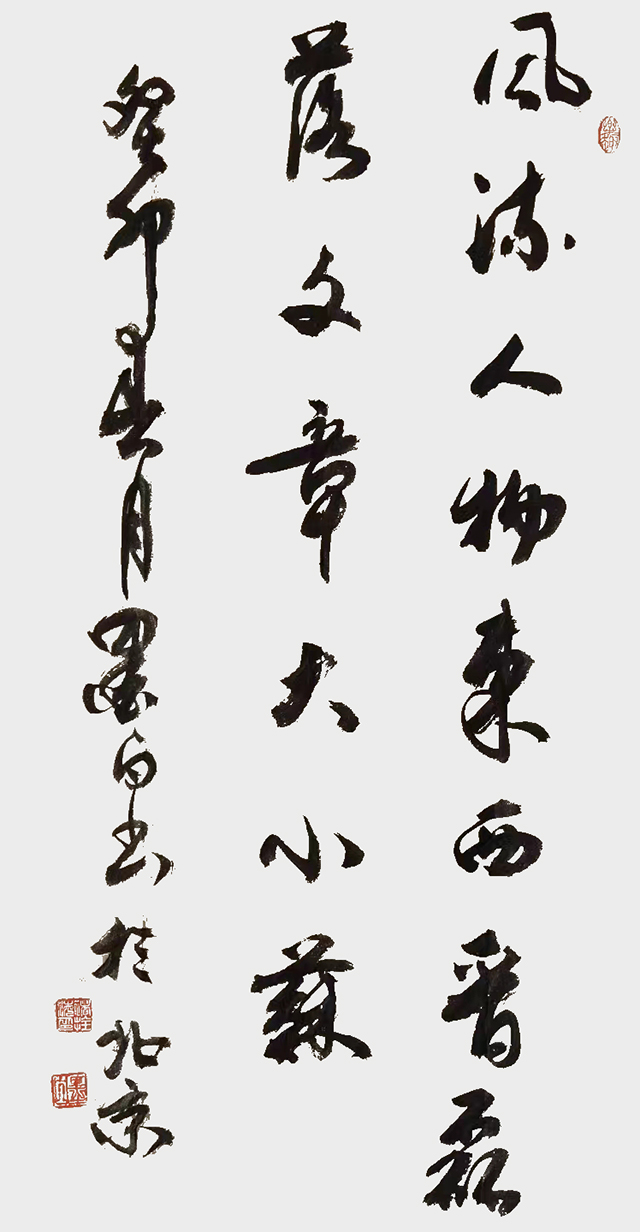 風流人物東西晉磊
落文章大小蘇
癸卯春月墨白书於北京